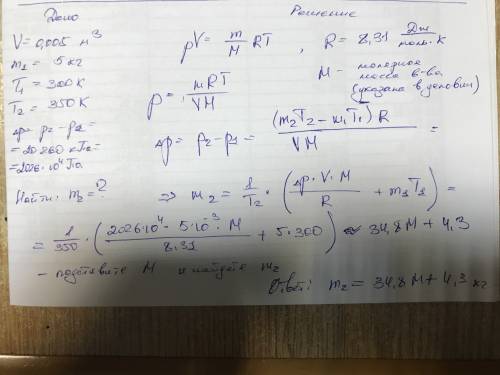 Дано
V = 0,005 м³
m₁ = 5 кг
T₁ = 300 K
T₂ = 350 K
Δp = p₂ - p₁ =
= 20260 кПа =
= 2026·10⁴ Па
Найти: m₂ = ?
Решение
pV = m/M RT , R = 8,31 Дж/моль·К
p = mRT/VM
M - молярная масса в-ва
(указана в условии)
Δp = p₂ - p₁ = (m₂T₂ - m₁T₁) R / VM =
⇒ m₂ = 1/T₂ · (Δp·V·M / R + m₁T₁) =
= 1/350 · (2026·10⁴ · 5·10⁻³ · M / 8.31 + 5·300) ≈ 34,8M + 4,3
- подставьте M и найдете m₂
Ответ: m₂ = 34,8M + 4,3 кг